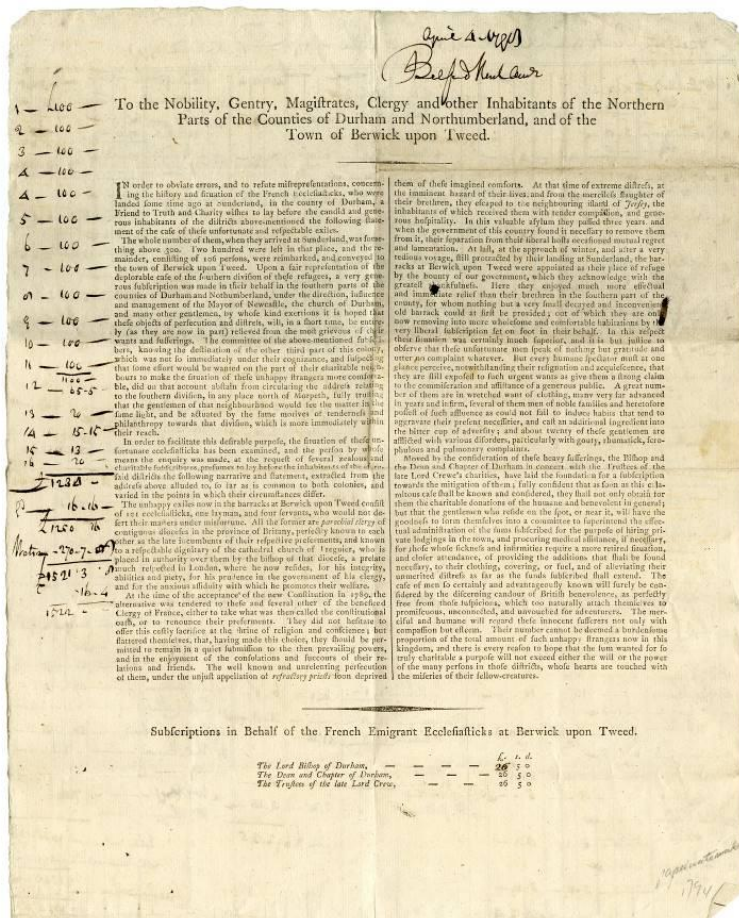 To the Nobility, Gentry, Magiſtrates, Clergy and other Inhabitants of the Northern
Parts of the Counties of Durham and Northumberland, and of the
Town of Berwick upon Tweed.
IN order to obviate errors, and to refute miſrepreſentations, concern-
ing the hiſtory and ſituation of the French Eccleſiaſticks, who were
landed ſome time ago at Sunderland, in the county of Durham, a
Friend to Truth and Charity wiſhes to lay before the candid and gene-
rous inhabitants of the diſtricts above-mentioned the following ſtate-
ment of the caſe of theſe unfortunate and reſpectable exiles.
The whole number of them, when they arrived at Sunderland, was ſome-
thing above 300. Two hundred were left in that place, and the re-
mainder, conſiſting of 106 perſons, were reimbarked, and conveyed to
the town of Berwick upon Tweed. Upon a fair repreſentation of the
deplorable caſe of the ſouthern diviſion of theſe refugees, a very gene-
rous ſubſcription was made in their behalf in the ſouthern parts of the
counties of Durham and Northumberland, under the direction, influence
and management of the Mayor of Newcaſtle, the church of Durham,
and many other gentlemen, by whoſe kind exertions it is hoped that
theſe objects of perſecution and diſtreſs, will, in a ſhort time, be entire-
ly (as they are now in part) relieved from the moſt grievous of their
wants and ſufferings. The committee of the above-mentioned ſubſcri-
bers, knowing the deſtination of the other third part of this colony,
which was not ſo immediately under their cognizance, and ſuſpecting
that ſome effort would be wanted on the part of their charitable neigh-
bours to make the ſituation of theſe unhappy ſtrangers more comforta-
ble, did on that account abſtain from circulating the addreſs relating
to the ſouthern diviſion, in any place north of Morpeth, fully truſting
that the gentlemen of that neighbourhood would ſee the matter in the
ſame light, and be actuated by the ſame motives of tenderneſs and
philanthropy towards that diviſion, which is more immediately within
their reach.
In order to facilitate this deſirable purpoſe, the ſituation of theſe un-
fortunate eccleſiaſticks has been examined, and the perſon by whoſe
means the enquiry was made, at the requeſt of ſeveral zealous and
charitable ſubſcribers, preſumes to lay before the inhabitants of the
ſaid diſtricts the following narrative and ſtatement, extracted from the
addreſs above alluded to, ſo far as is common to both colonies, and
varied in the points in which their circumſtances differ.
The unhappy exiles now in the barracks at Berwick upon Tweed conſiſt
of 101 eccleſiaſticks, one layman, and four ſervants, who would not de-
ſert their maſters under miſfortune. All the former are parochial clergy of
contiguous dioceſes in the province of Britany, perfectly known to each
other as the late incumbents of their reſpective preferments, and known
to a reſpectable dignitary of the cathedral church of Treguier, who is
placed in authority over them by the biſhop of that dioceſe, a prelate
much reſpected in London, where he now reſides, for his integrity,
abilities and piety, for his prudence in the government of his clergy,
and for the anxious aſſiduity with which he promotes their welfare.
At the time of the acceptance of the new Conſtitution in 1789, the
alternative was tendered to theſe and ſeveral other of the beneficed
Clergy of France, either to take what was then called the conſtitutional
oath, or to renounce their preferments. They did not heſitate to
offer this coſtly ſacrifice at the ſhrine of religion and conſcience; but
flattered themſelves, that, having made this choice, they ſhould be per-
mitted to remain in a quiet ſubmiſſion to the then prevailing powers,
and in the enjoyment of the conſolations and ſuccours of their re-
lations and friends. The well known and unrelenting perſecution
of them, under the unjuſt appellation of refractory prieſts ſoon deprived
them of theſe imagined comforts. At that time of extreme diſtreſs, at
the imminent hazard of their lives, and from the mercileſs ſlaughter of
their brethren, they eſcaped to the neighbouring iſland of Jerſey, the
inhabitants of which received them with tender compaſſion, and gene-
rous hoſpitality. In this valuable aſylum they paſſed three years, and
when the government of this country found it neceſſary to remove them
from it, their ſeparation from their liberal hoſts occaſioned mutual regret
and lamentation. At laſt, at the approach of winter, and after a very
tedious voyage, ſtill protracted by their landing at Sunderland, the bar-
racks at Berwick upon Tweed were appointed as their place of refuge
by the bounty of our government, which they acknowledge with the
greateſt thankfulneſs. Here they enjoyed much more effectual
and immediate relief than their brethren in the ſouthern part of the
county, for whom nothing but a very ſmall decayed and inconvenient
old barrack could at firſt be provided; out of which they are only
now removing into more wholeſome and comfortable habitations by the
very liberal ſubſcription ſet on foot in their behalf. In this reſpect
their ſituation was certainly much ſuperior, and it is but juſtice to
obſerve that theſe unfortunate men ſpeak of nothing but gratitude and
utter no complaint whatever. But every humane ſpectator muſt at one
glance perceive, notwithſtanding their reſignation and acquieſcence, that
they are ſtill expoſed to ſuch urgent wants as give them a ſtrong claim
to the commiſeration and aſſiſtance of a generous public. A great num-
ber of them are in wretched want of clothing, many very far advanced
in years and infirm, ſeveral of them men of noble families and heretofore
poſſeſt of ſuch affluence as could not fail to induce habits that tend to
aggravate their preſent neceſſities, and caſt an additional ingredient into
the bitter cup of adverſity; and about twenty of theſe gentlemen are
afflicted with various diſorders, particularly with gouty, rheumatick, ſcro-
phulous and pulmonary complaints.
Moved by the conſideration of theſe heavy ſufferings, the Biſhop and
the Dean and Chapter of Durham in concert with the Truſtees of the
late Lord Crewe's charities, have laid the foundation for a ſubſcription
towards the mitigation of them; fully confident that as ſoon as this cala-
mitous caſe ſhall be known and conſidered, they ſhall not only obtain for
them the charitable donations of the humane and benevolent in general;
but that the gentlemen who reſide on the ſpot, or near it, will have the
goodneſs to form themſelves into a committee to ſuperintend the effec-
tual adminiſtration of the ſums ſubſcribed for the purpoſe of hiring pri-
vate lodgings in the town, and procuring medical aſſiſtance, if neceſſary,
for thoſe whoſe ſickneſs and infirmities require a more retired ſituation,
and cloſer attendance, of providing the additions that ſhall be found
neceſſary, to their clothing, covering, or fuel, and of alleviating their
unmerited diſtreſs as far as the funds ſubſcribed ſhall extend. The
caſe of men ſo certainly and advantageouſly known will ſurely be con-
ſidered by the diſcerning candour of Britiſh benevolence, as perfectly
free from thoſe ſuſpicions, which too naturally attach themſelves to
promiſcuous, unconnected, and unvouched for adventurers. The mer-
ciful and humane will regard theſe innocent ſufferers not only with
compaſſion but eſteem. Their number cannot be deemed a burdenſome
proportion of the total amount of ſuch unhappy ſtrangers now in this
kingdom, and there is every reaſon to hope that the ſum wanted for ſo
truly charitable a purpoſe will not exceed either the will or the power
of the many perſons in thoſe diſtricts, whoſe hearts are touched with
the miſeries of their fellow-creatures.
Subſcriptions in Behalf of the French Emigrant Eccleſiaſticks at Berwick upon Tweed.
£. s. d.
The Lord Biſhop of Durham, — — — — 26 5 0
The Dean and Chapter of Durham, — — — 26 5 0
The Truſtees of the late Lord Crew, — — 26 5 0
1 — £100 —
2 — 100 —
3 — 100
4 — 100 —
4 — 100 —
5 — 100 —
6 — 100 —
7 — 100 —
8 — 100 —
9 — 100 —
10 — 100 —
11 — 100
1100 —
12 — 65-5
13 — 20 —
14 — 15-15 —
15 — 13 —
16 — 20 —
£1234 —
16-16 —
£1250 16
270-7-
1521 3
-16-4
1522 -
1794